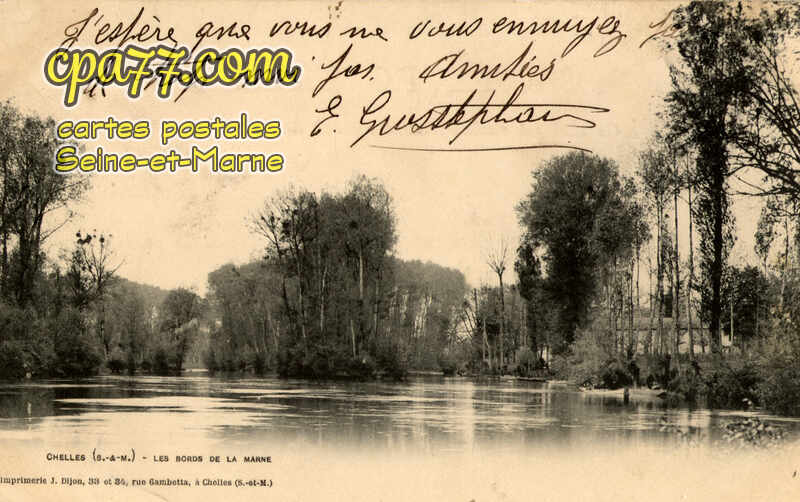 J'espère que vous ne vous ennuyez
pas. Amitiés
E. Grosstephan
cpa77.com
cartes postales
Seine-et-Marne
CHELLES (S.-&-M.) - LES BORDS DE LA MARNE
Imprimerie J. Dijon, 33 et 34, rue Gambetta, à Chelles (S.-et-M.)